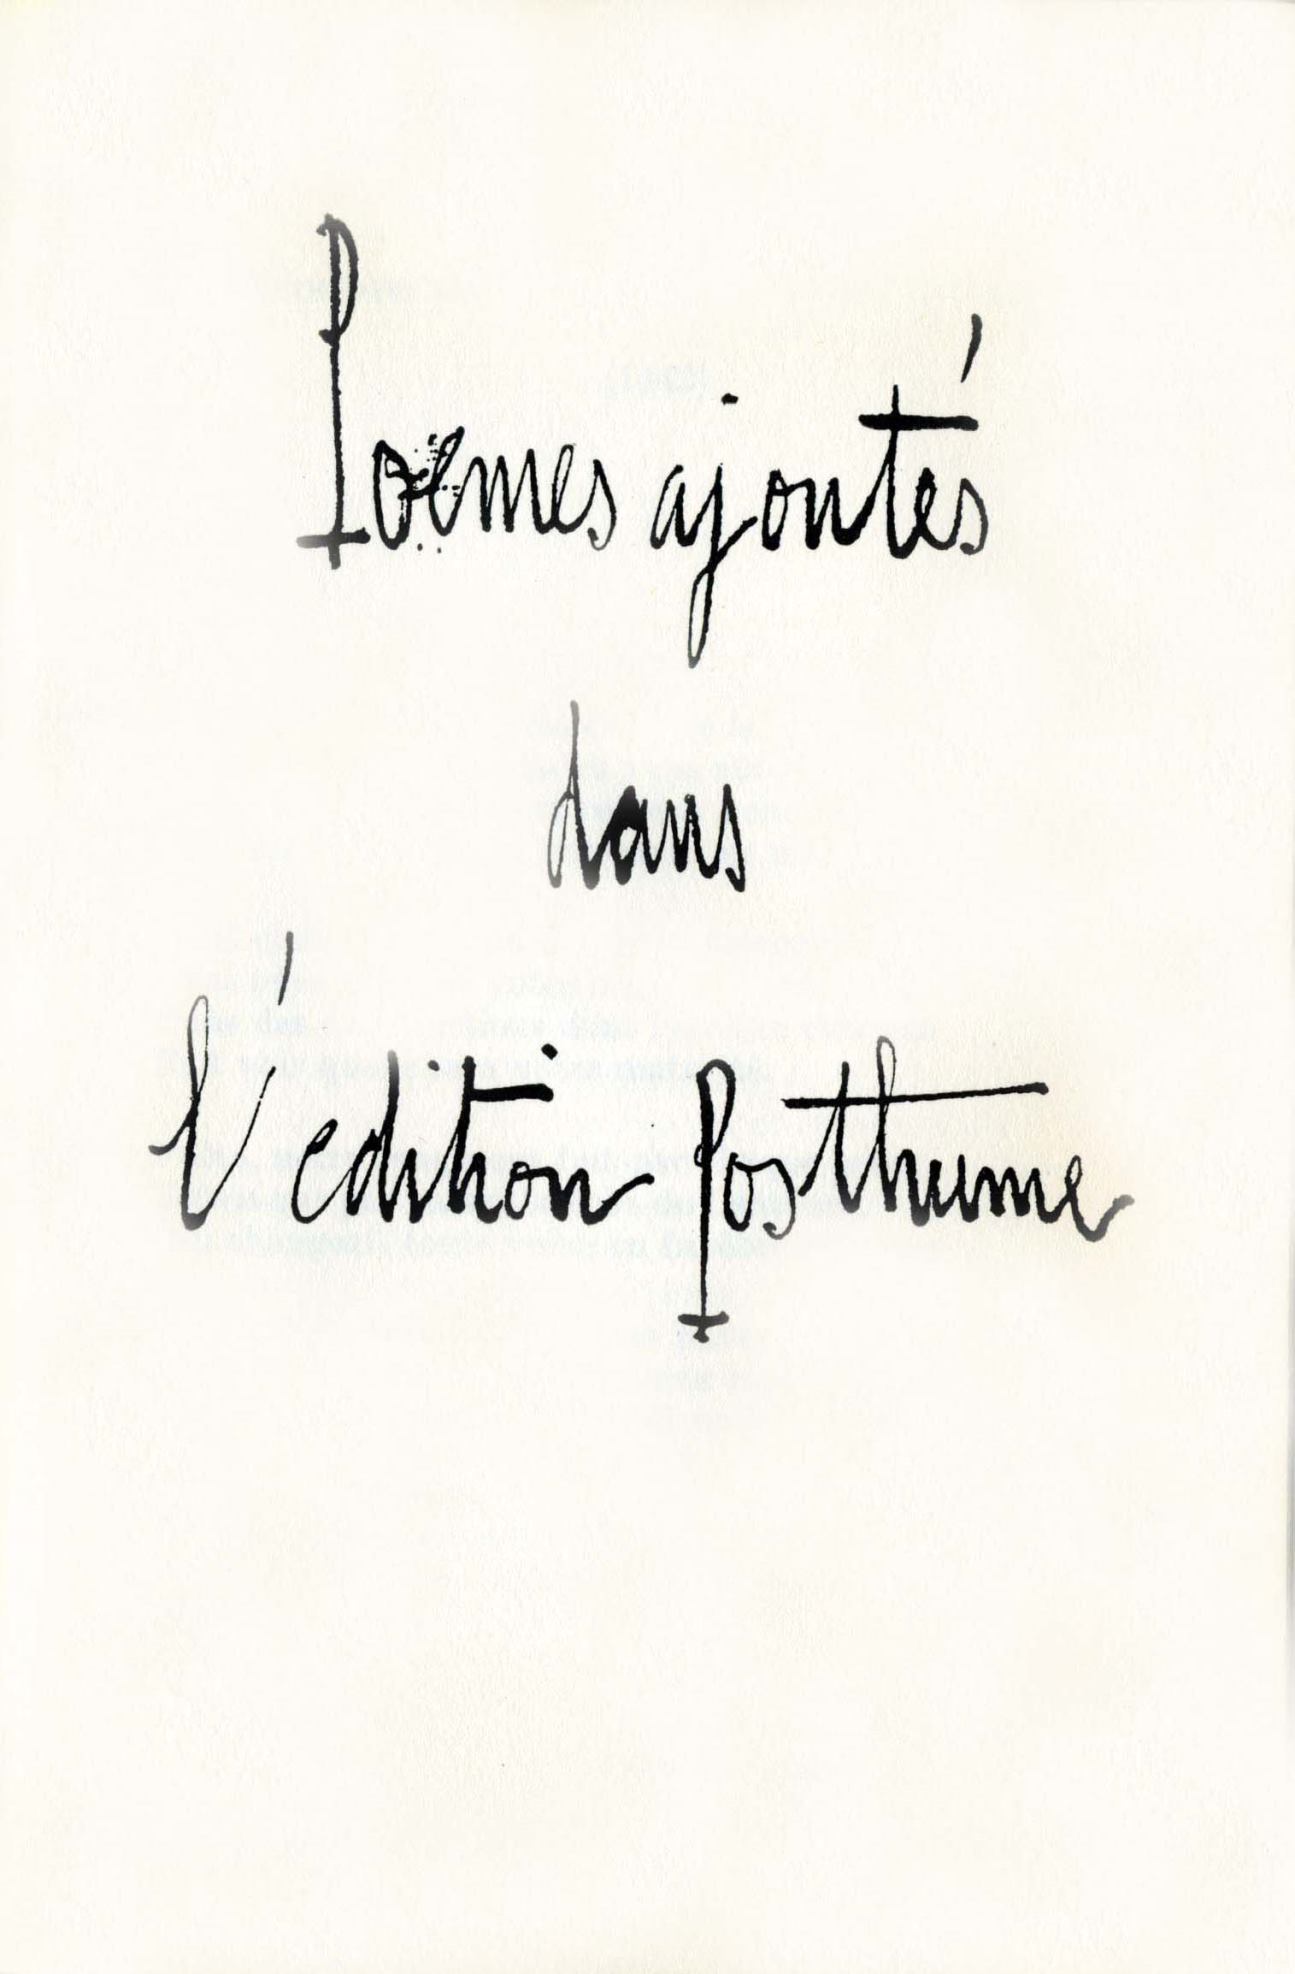 Poemes ajoutés
dans
l'édition posthume